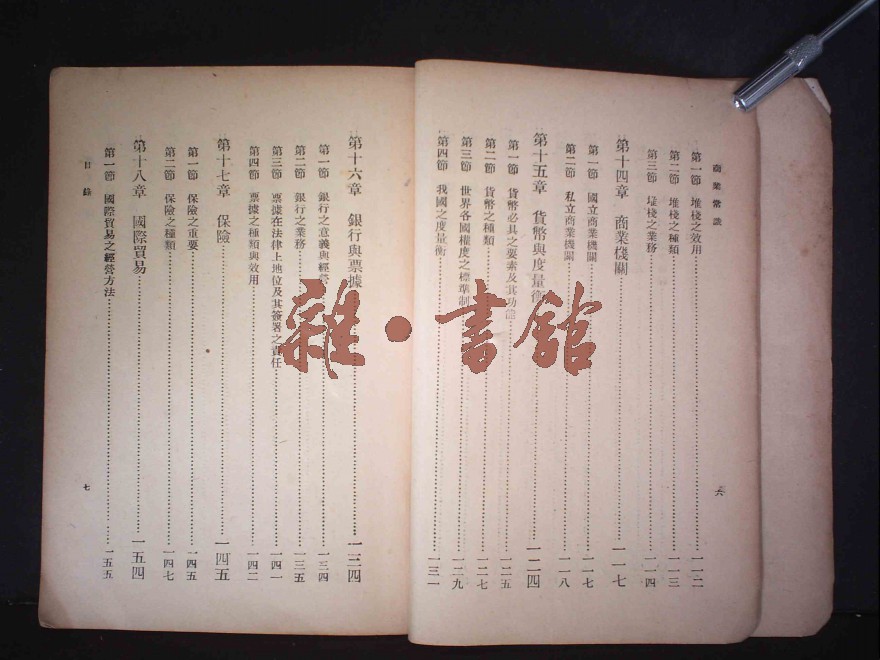 商業常識
第一節 堆棧之效用 一一二
第二節 堆棧之種類 一一三
第三節 堆棧之業務 一一四
第十四章 商業機關 一一七
第一節 國立商業機關 一一七
第二節 私立商業機關 一一八
第十五章 貨幣與度量衡 一二四
第一節 貨幣必具之要素及其功能 一二五
第二節 貨幣之種類 一二七
第三節 世界各國權度之標準制 一二九
第四節 我國之度量衡 一三一
六
第十六章 銀行與票據 一三四
第一節 銀行之意義與經營 一三四
第二節 銀行之業務 一三五
第三節 票據在法律上地位及其簽署之責任 一四一
第四節 票據之種類與效用 一四二
第十七章 保險 一四五
第一節 保險之重要 一四五
第二節 保險之種類 一四七
第十八章 國際貿易 一五四
第一節 國際貿易之經營方法 一五五
目錄
七
雜·書館